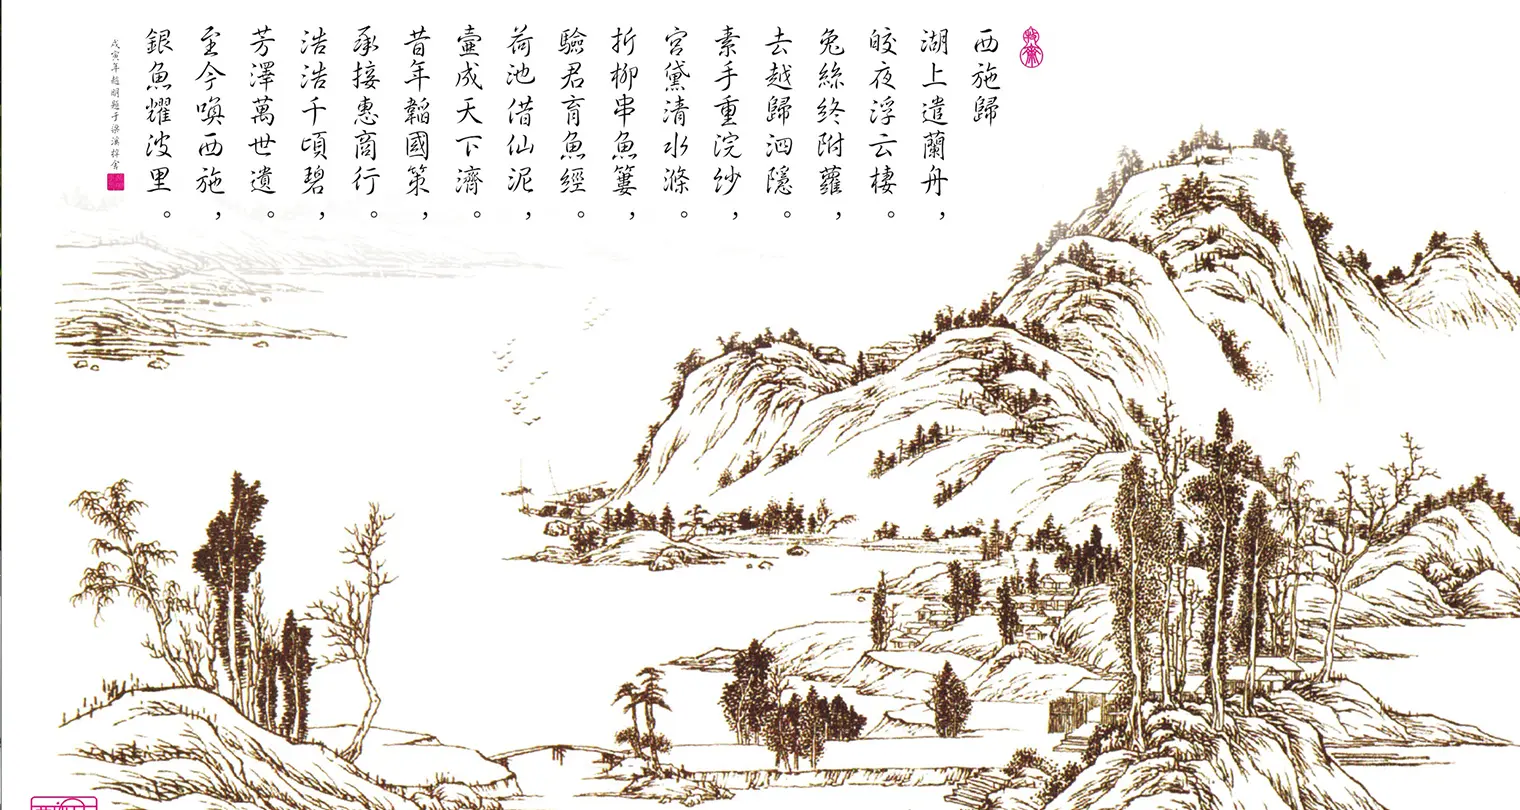 西施歸
湖上遣蘭舟，
皎夜浮云棲。
兔絲終附蘿，
去越歸泗隱。
素手重浣紗，
宮黛清水滌。
折柳串魚簍，
驗君育魚經。
荷池借仙泥，
壷成天下濟。
昔年韜國策，
承接惠商行。
浩浩千頃碧，
芳澤萬世遺。
至今喚西施，
銀魚耀波里。
戊寅年趙明題于梁溪梓舍